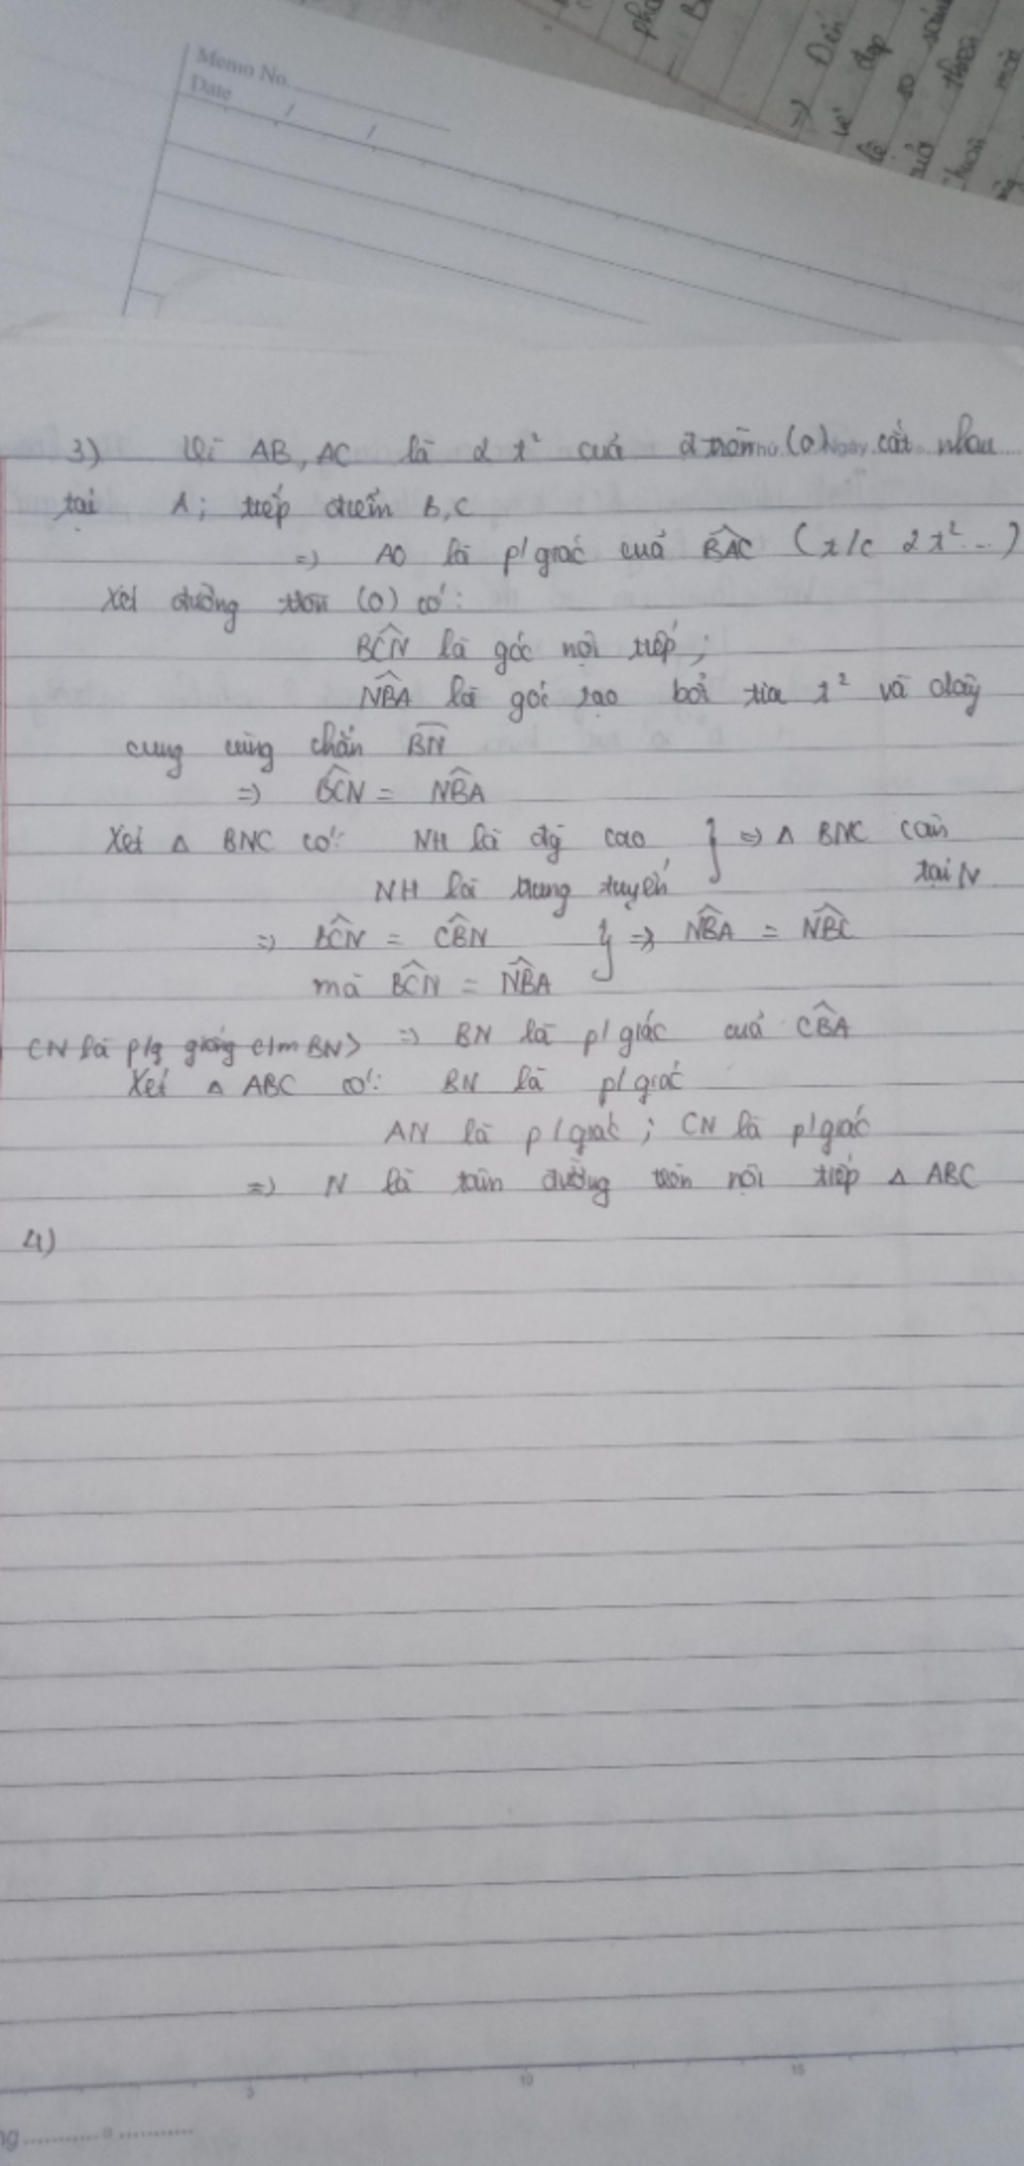 Memo No.
Date / /
=> Đến
vẻ đẹp
so sánh
thiên
3) Vì AB, AC là 2 t² của đ tròn (O) cắt nhau
tại A; tiếp điểm B, C
=> AO là p/giác của BAC (t/c 2t²...)
Xét đường tròn (O) có:
BCN là góc nội tiếp;
NBA là góc tạo bởi tia t² và dây
cung cùng chắn BN
=> BCN = NBA
Xét Δ BNC có: NH là đg cao } => Δ BNC cân
NH là trung tuyến tại N
=> BCN = CBN } => NBA = NBC
mà BCN = NBA
CN là p/g giống c/m BN> => BN là p/giác của CBA
Xét Δ ABC có: BN là p/giác
AN là p/giác; CN là p/giác
=> N là tâm đường tròn nội tiếp Δ ABC
4)
5 10 15